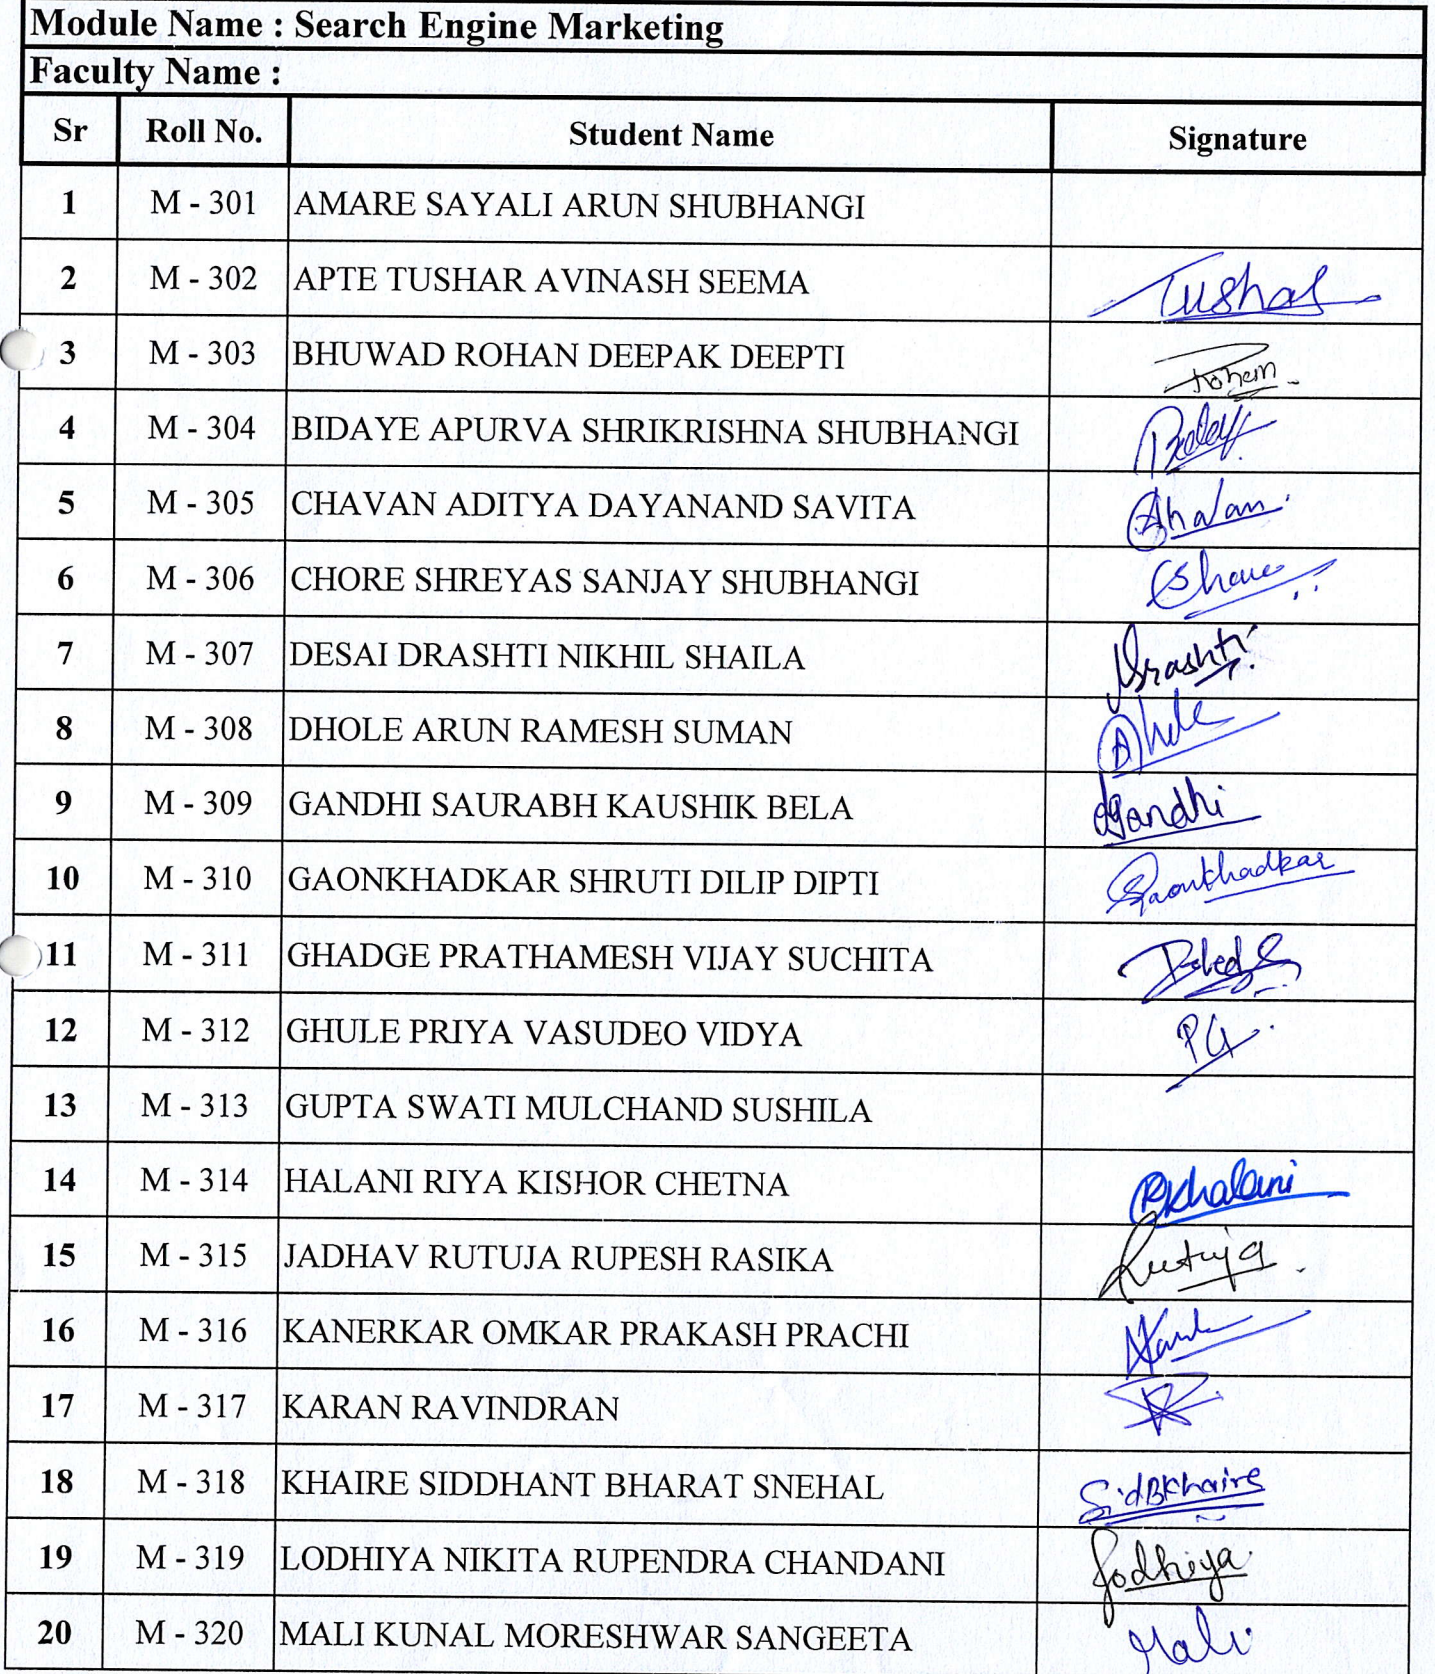 Module Name : Search Engine Marketing
Faculty Name :
Sr Roll No. Student Name Signature
1 M - 301 AMARE SAYALI ARUN SHUBHANGI
2 M - 302 APTE TUSHAR AVINASH SEEMA Tushar
3 M - 303 BHUWAD ROHAN DEEPAK DEEPTI Rohan
4 M - 304 BIDAYE APURVA SHRIKRISHNA SHUBHANGI
5 M - 305 CHAVAN ADITYA DAYANAND SAVITA
6 M - 306 CHORE SHREYAS SANJAY SHUBHANGI
7 M - 307 DESAI DRASHTI NIKHIL SHAILA Drashti
8 M - 308 DHOLE ARUN RAMESH SUMAN
9 M - 309 GANDHI SAURABH KAUSHIK BELA Gandhi
10 M - 310 GAONKHADKAR SHRUTI DILIP DIPTI Gaonkhadkar
11 M - 311 GHADGE PRATHAMESH VIJAY SUCHITA
12 M - 312 GHULE PRIYA VASUDEO VIDYA PG
13 M - 313 GUPTA SWATI MULCHAND SUSHILA
14 M - 314 HALANI RIYA KISHOR CHETNA RKhalani
15 M - 315 JADHAV RUTUJA RUPESH RASIKA Rutuja
16 M - 316 KANERKAR OMKAR PRAKASH PRACHI
17 M - 317 KARAN RAVINDRAN
18 M - 318 KHAIRE SIDDHANT BHARAT SNEHAL SidBKhaire
19 M - 319 LODHIYA NIKITA RUPENDRA CHANDANI Lodhiya
20 M - 320 MALI KUNAL MORESHWAR SANGEETA Mali